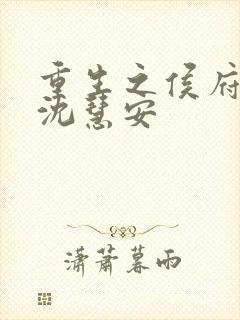 重生之侯府
沈慧安
潇萧暮雨